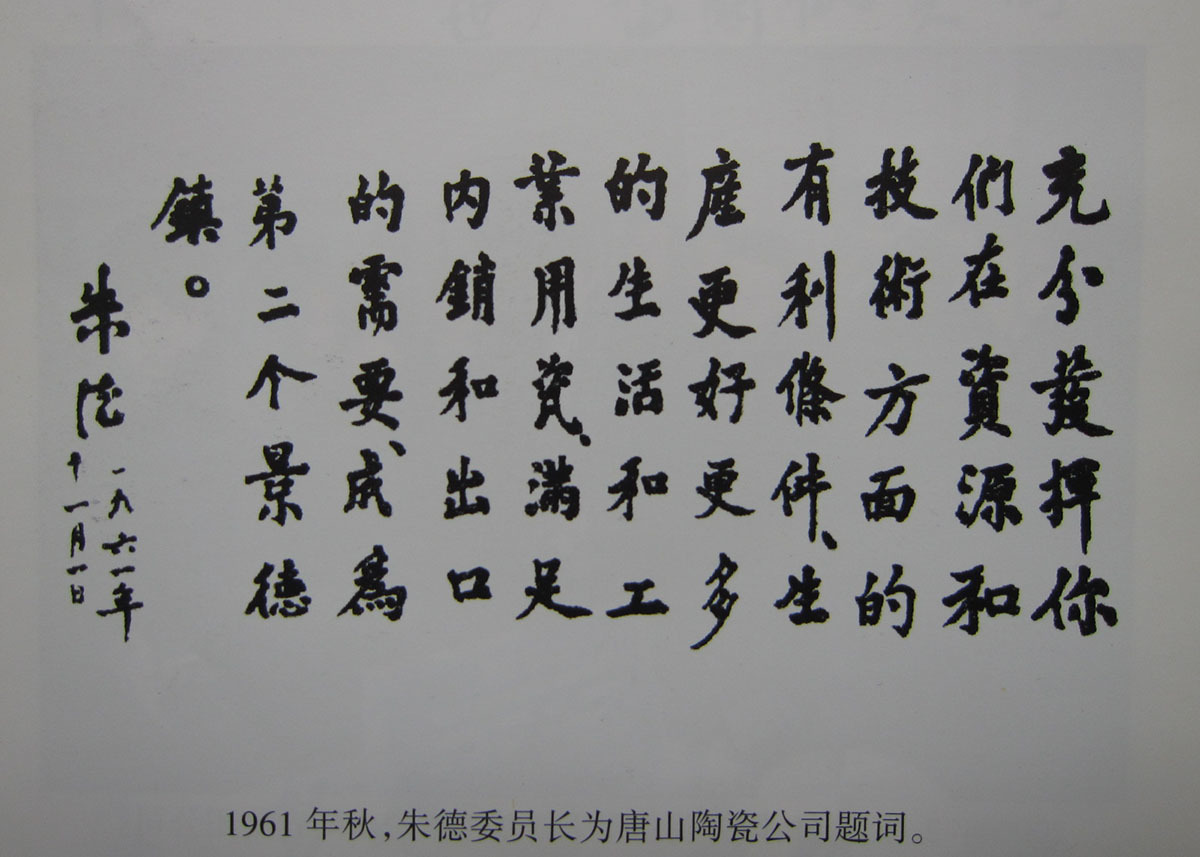 充分發揮你
們在資源和
技術方面的
有利條件、生
産更好更多
的生活和工
業用瓷、滿足
内銷和出口
的需要、成為
第二个景德
鎮。
朱德
一九六一年
十一月一日
1961年秋,朱德委员长为唐山陶瓷公司题词。